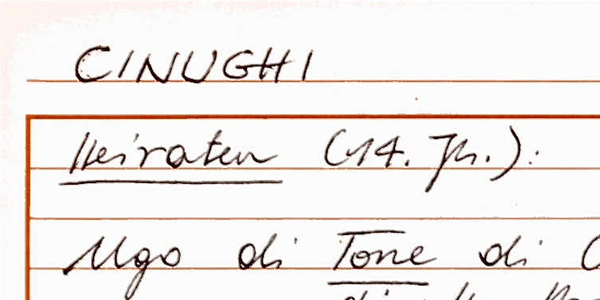 CINUGHI
Heiraten (14. Jh.):
Ugo di Tone di C